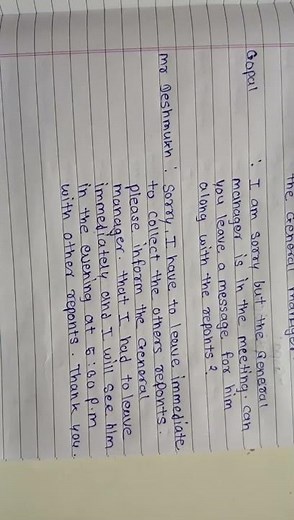 the General Manager
Gopal : I am sorry but the General
manager is in the meeting. Can
you leave a message for him
along with the reponts?
Mr Deshmukh : Sorry, I have to leave immediate
to collect the others reponts.
please inform the General
manager. that I had to leave
immediately and I will see him
in the evening at 5.30 p.m
with other reponts. Thank you.